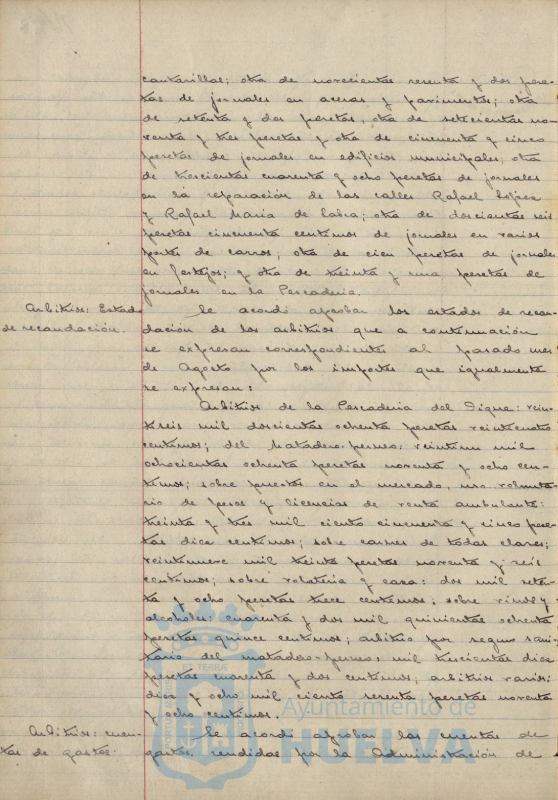 cantarillas; otra de novecientas sesenta y dos pese-
tas de jornales en aceras y pavimentos; otra
de setenta y dos pesetas, otra de setecientas no-
venta y tres pesetas y otra de cincuenta y cinco
pesetas de jornales en edificios municipales, otra
de trescientas cuarenta y ocho pesetas de jornales
en la reparación de las calles Rafael López
y Rafael María de Labra; otra de doscientas seis
pesetas cincuenta centimos de jornales en varios
portes de carros; otra de cien pesetas de jornales
en festejos; y otra de treinta y una pesetas de
jornales en la Pescaderia.
Arbitrios: Estados
de recaudación.
Se acordó aprobar los estados de recau-
dación de los arbitrios que a continuación
se expresan correspondientes al pasado mes
de Agosto por los importes que igualmente
se expresan:
Arbitrios de la Pescaderia del Dique: vein-
tiseis mil doscientas ochenta pesetas veinticuatro
centimos; del Matadero-perneo: veintiun mil
ochocientas ochenta pesetas noventa y ocho cen-
timos; sobre puestos en el mercado, uso volunta-
rio de pesas y licencias de venta ambulante:
treinta y tres mil ciento cincuenta y cinco pese-
tas diez centimos; sobre carnes de todas clases;
veintinueve mil treinta pesetas noventa y seis
centimos; sobre volateria y caza: dos mil seten-
ta y ocho pesetas trece centimos; sobre vinos y
alcoholes: cuarenta y dos mil quinientas ochenta
pesetas quince centimos; arbitrio por seguro sani-
tario del matadero-perneo: mil trescientas diez
pesetas cuarenta y dos centimos; arbitrios varios:
diez y ocho mil ciento sesenta pesetas noventa
y ocho centimos.
Arbitrios: cuen-
tas de gastos.
Se acordó aprobar las cuentas de
gastos rendidas por la Administración de
Ayuntamiento de
HUELVA